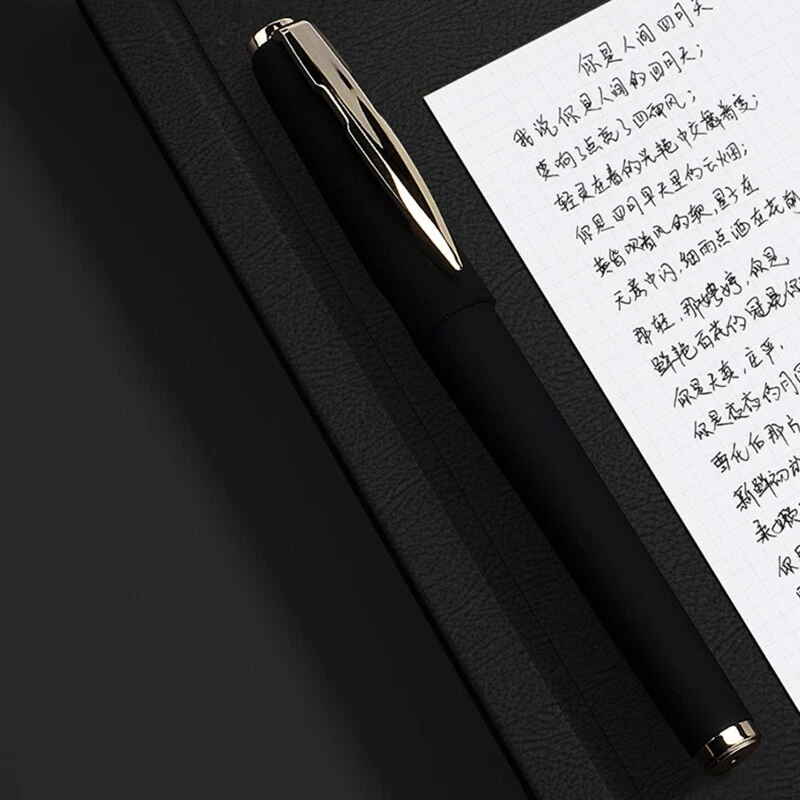 你是人间四月天
我说你是人间的四月天；
笑响了点亮了四面风；
轻灵在春的光艳中交舞着变；
你是四月早天里的云烟；
黄昏吹着风的软，星子在
无意中闪，细雨点洒在花前
那轻，那娉婷，你是
鲜艳百花的冠冕你
你是天真，庄严，
你是夜夜的月圆
雪化后那片
新鲜初
柔嫩
你是